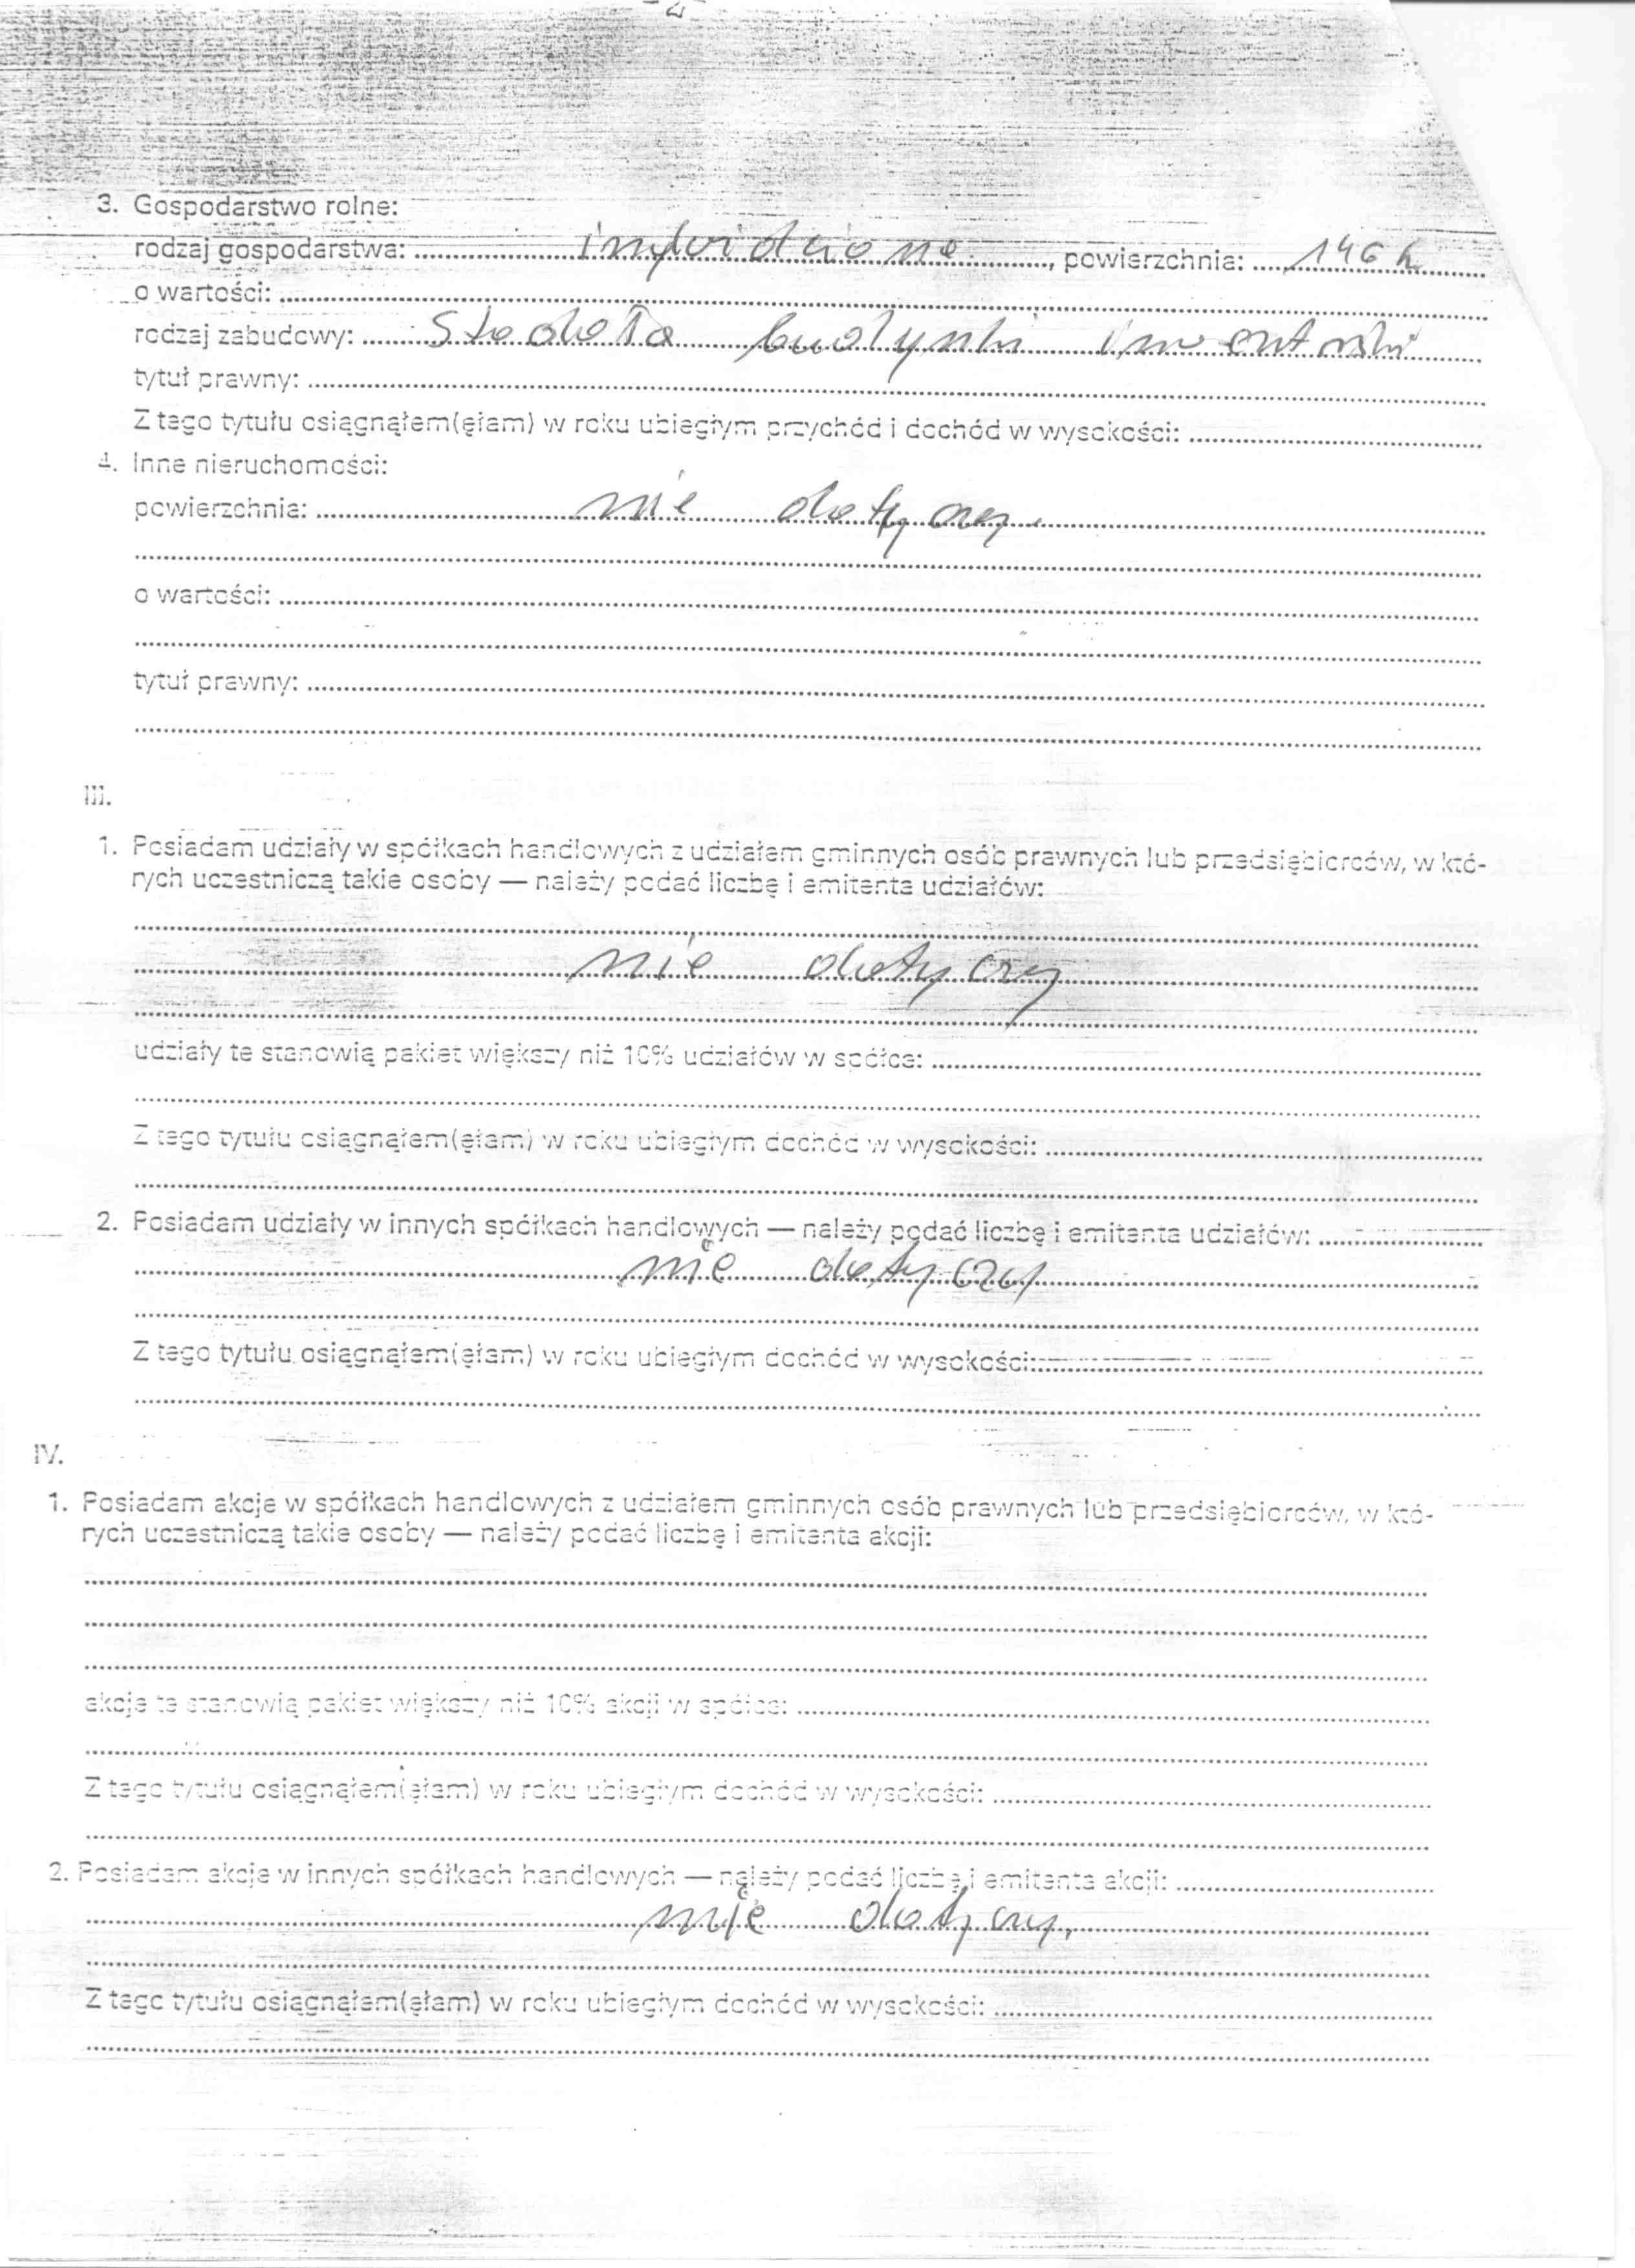 3. Gospodarstwo rolne:
rodzaj gospodarstwa: ..., powierzchnia: 146 h
o wartości:
rodzaj zabudowy: Stodoła budynki
tytuł prawny:
Z tego tytułu osiągnąłem(ęłam) w roku ubiegłym przychód i dochód w wysokości:
4. Inne nieruchomości:
powierzchnia: nie dotyczy.
o wartości:
tytuł prawny:
III.
1. Posiadam udziały w spółkach handlowych z udziałem gminnych osób prawnych lub przedsiębiorców, w któ-
rych uczestniczą takie osoby — należy podać liczbę i emitenta udziałów:
nie dotyczy
udziały te stanowią pakiet większy niż 10% udziałów w spółce:
Z tego tytułu osiągnąłem(ęłam) w roku ubiegłym dochód w wysokości:
2. Posiadam udziały w innych spółkach handlowych — należy podać liczbę i emitenta udziałów:
nie dotyczy
Z tego tytułu osiągnąłem(ęłam) w roku ubiegłym dochód w wysokości:
IV.
1. Posiadam akcje w spółkach handlowych z udziałem gminnych osób prawnych lub przedsiębiorców, w któ-
rych uczestniczą takie osoby — należy podać liczbę i emitenta akcji:
akcje te stanowią pakiet większy niż 10% akcji w spółce:
Z tego tytułu osiągnąłem(ęłam) w roku ubiegłym dochód w wysokości:
2. Posiadam akcje w innych spółkach handlowych — należy podać liczbę i emitenta akcji:
nie dotyczy,
Z tego tytułu osiągnąłem(ęłam) w roku ubiegłym dochód w wysokości: